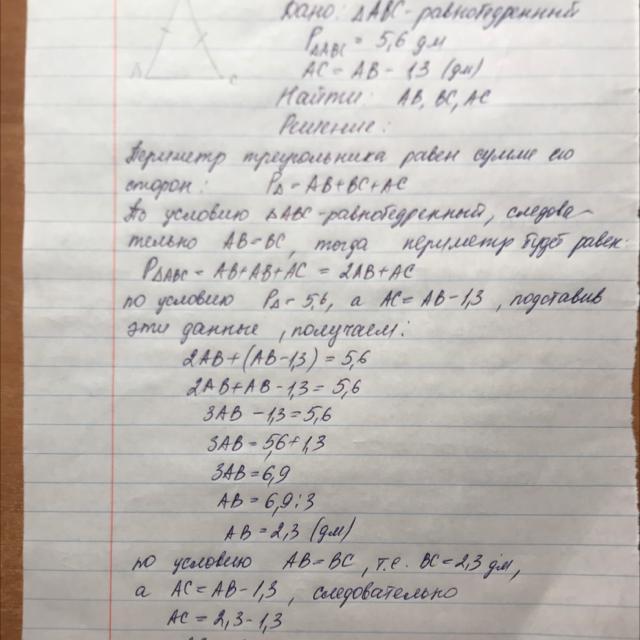 Дано: ΔABC - равнобедренный
PΔABC = 5,6 дм
AC = AB - 1,3 (дм)
Найти: AB, BC, AC
Решение:
A C
Периметр треугольника равен сумме его
сторон: PΔ = AB + BC + AC
По условию ΔABC - равнобедренный, следова-
тельно AB = BC, тогда периметр будет равен:
PΔABC = AB + AB + AC = 2AB + AC
по условию PΔ = 5,6, а AC = AB - 1,3, подставив
эти данные, получаем:
2AB + (AB - 1,3) = 5,6
2AB + AB - 1,3 = 5,6
3AB - 1,3 = 5,6
3AB = 5,6 + 1,3
3AB = 6,9
AB = 6,9 : 3
AB = 2,3 (дм)
по условию AB = BC, т.е. BC = 2,3 дм,
а AC = AB - 1,3, следовательно
AC = 2,3 - 1,3